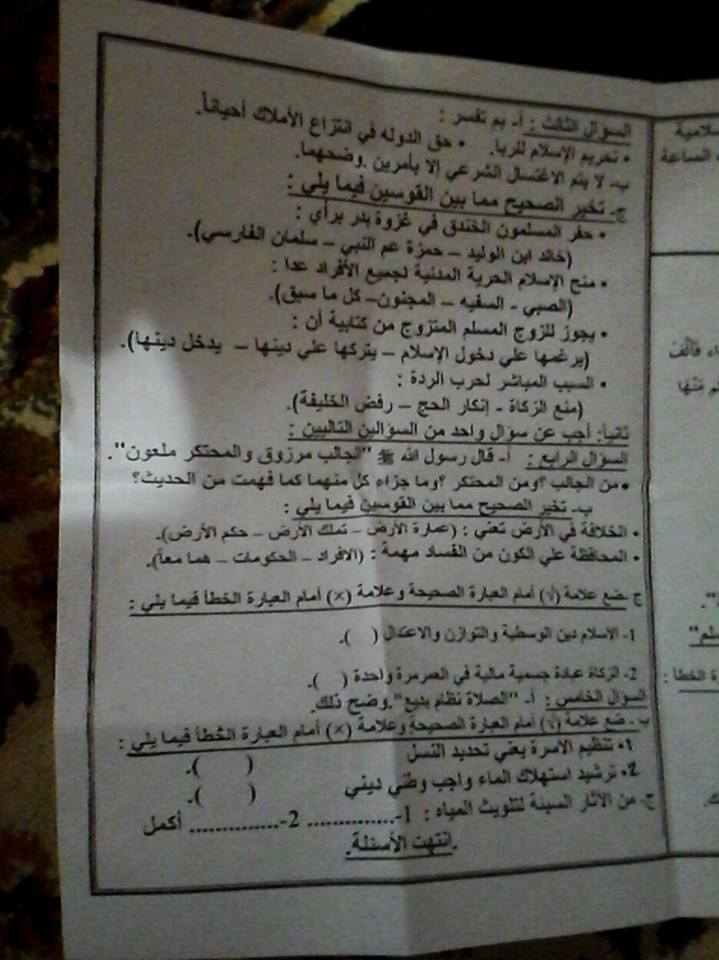 السؤال الثالث : أ- بم تفسر :
• تحريم الإسلام للربا. • حق الدوله في انتزاع الأملاك أحياناً.
ب- لا يتم الاغتسال الشرعي إلا بأمرين .وضحهما.
ج- تخير الصحيح مما بين القوسين فيما يلي :
• حفر المسلمون الخندق في غزوة بدر برأي :
(خالد ابن الوليد – حمزة عم النبي – سلمان الفارسي).
• منح الإسلام الحرية المدنية لجميع الأفراد عدا :
(الصبي - السفيه – المجنون– كل ما سبق).
• يجوز للزوج المسلم المتزوج من كتابية أن :
(يرغمها علي دخول الإسلام – يتركها علي دينها – يدخل دينها).
• السبب المباشر لحرب الردة :
(منع الزكاة - إنكار الحج – رفض الخليفة).
ثانياً: أجب عن سؤال واحد من السؤالين التاليين :
السؤال الرابع : أ- قال رسول الله ﷺ "الجالب مرزوق والمحتكر ملعون".
• من الجالب ؟ومن المحتكر ؟وما جزاء كل منهما كما فهمت من الحديث؟
ب- تخير الصحيح مما بين القوسين فيما يلي :
• الخلافة في الأرض تعني : (عمارة الأرض – تملك الأرض – حكم الأرض).
• المحافظة علي الكون من الفساد مهمة : (الافراد – الحكومات – هما معاً).
ج- ضع علامة (√) أمام العبارة الصحيحة وعلامة (×) أمام العبارة الخطأ فيما يلي :
1- الاسلام دين الوسطية والتوازن والاعتدال ( ).
2- الزكاة عبادة جسمية مالية في العمرمرة واحدة ( ).
السؤال الخامس : أ- "الصلاة نظام بديع".وضح ذلك.
ب- ضع علامة (√) أمام العبارة الصحيحة وعلامة (×) أمام العبارة الخطأ فيما يلي :
1• تنظيم الاسرة يعني تحديد النسل ( ).
2• ترشيد استهلاك الماء واجب وطني ديني ( ).
ج- من الآثار السيئة لتلويث المياه : 1-.............. 2-.............. أكمل
.انتهت الأسئلة.
سلامية
الساعة